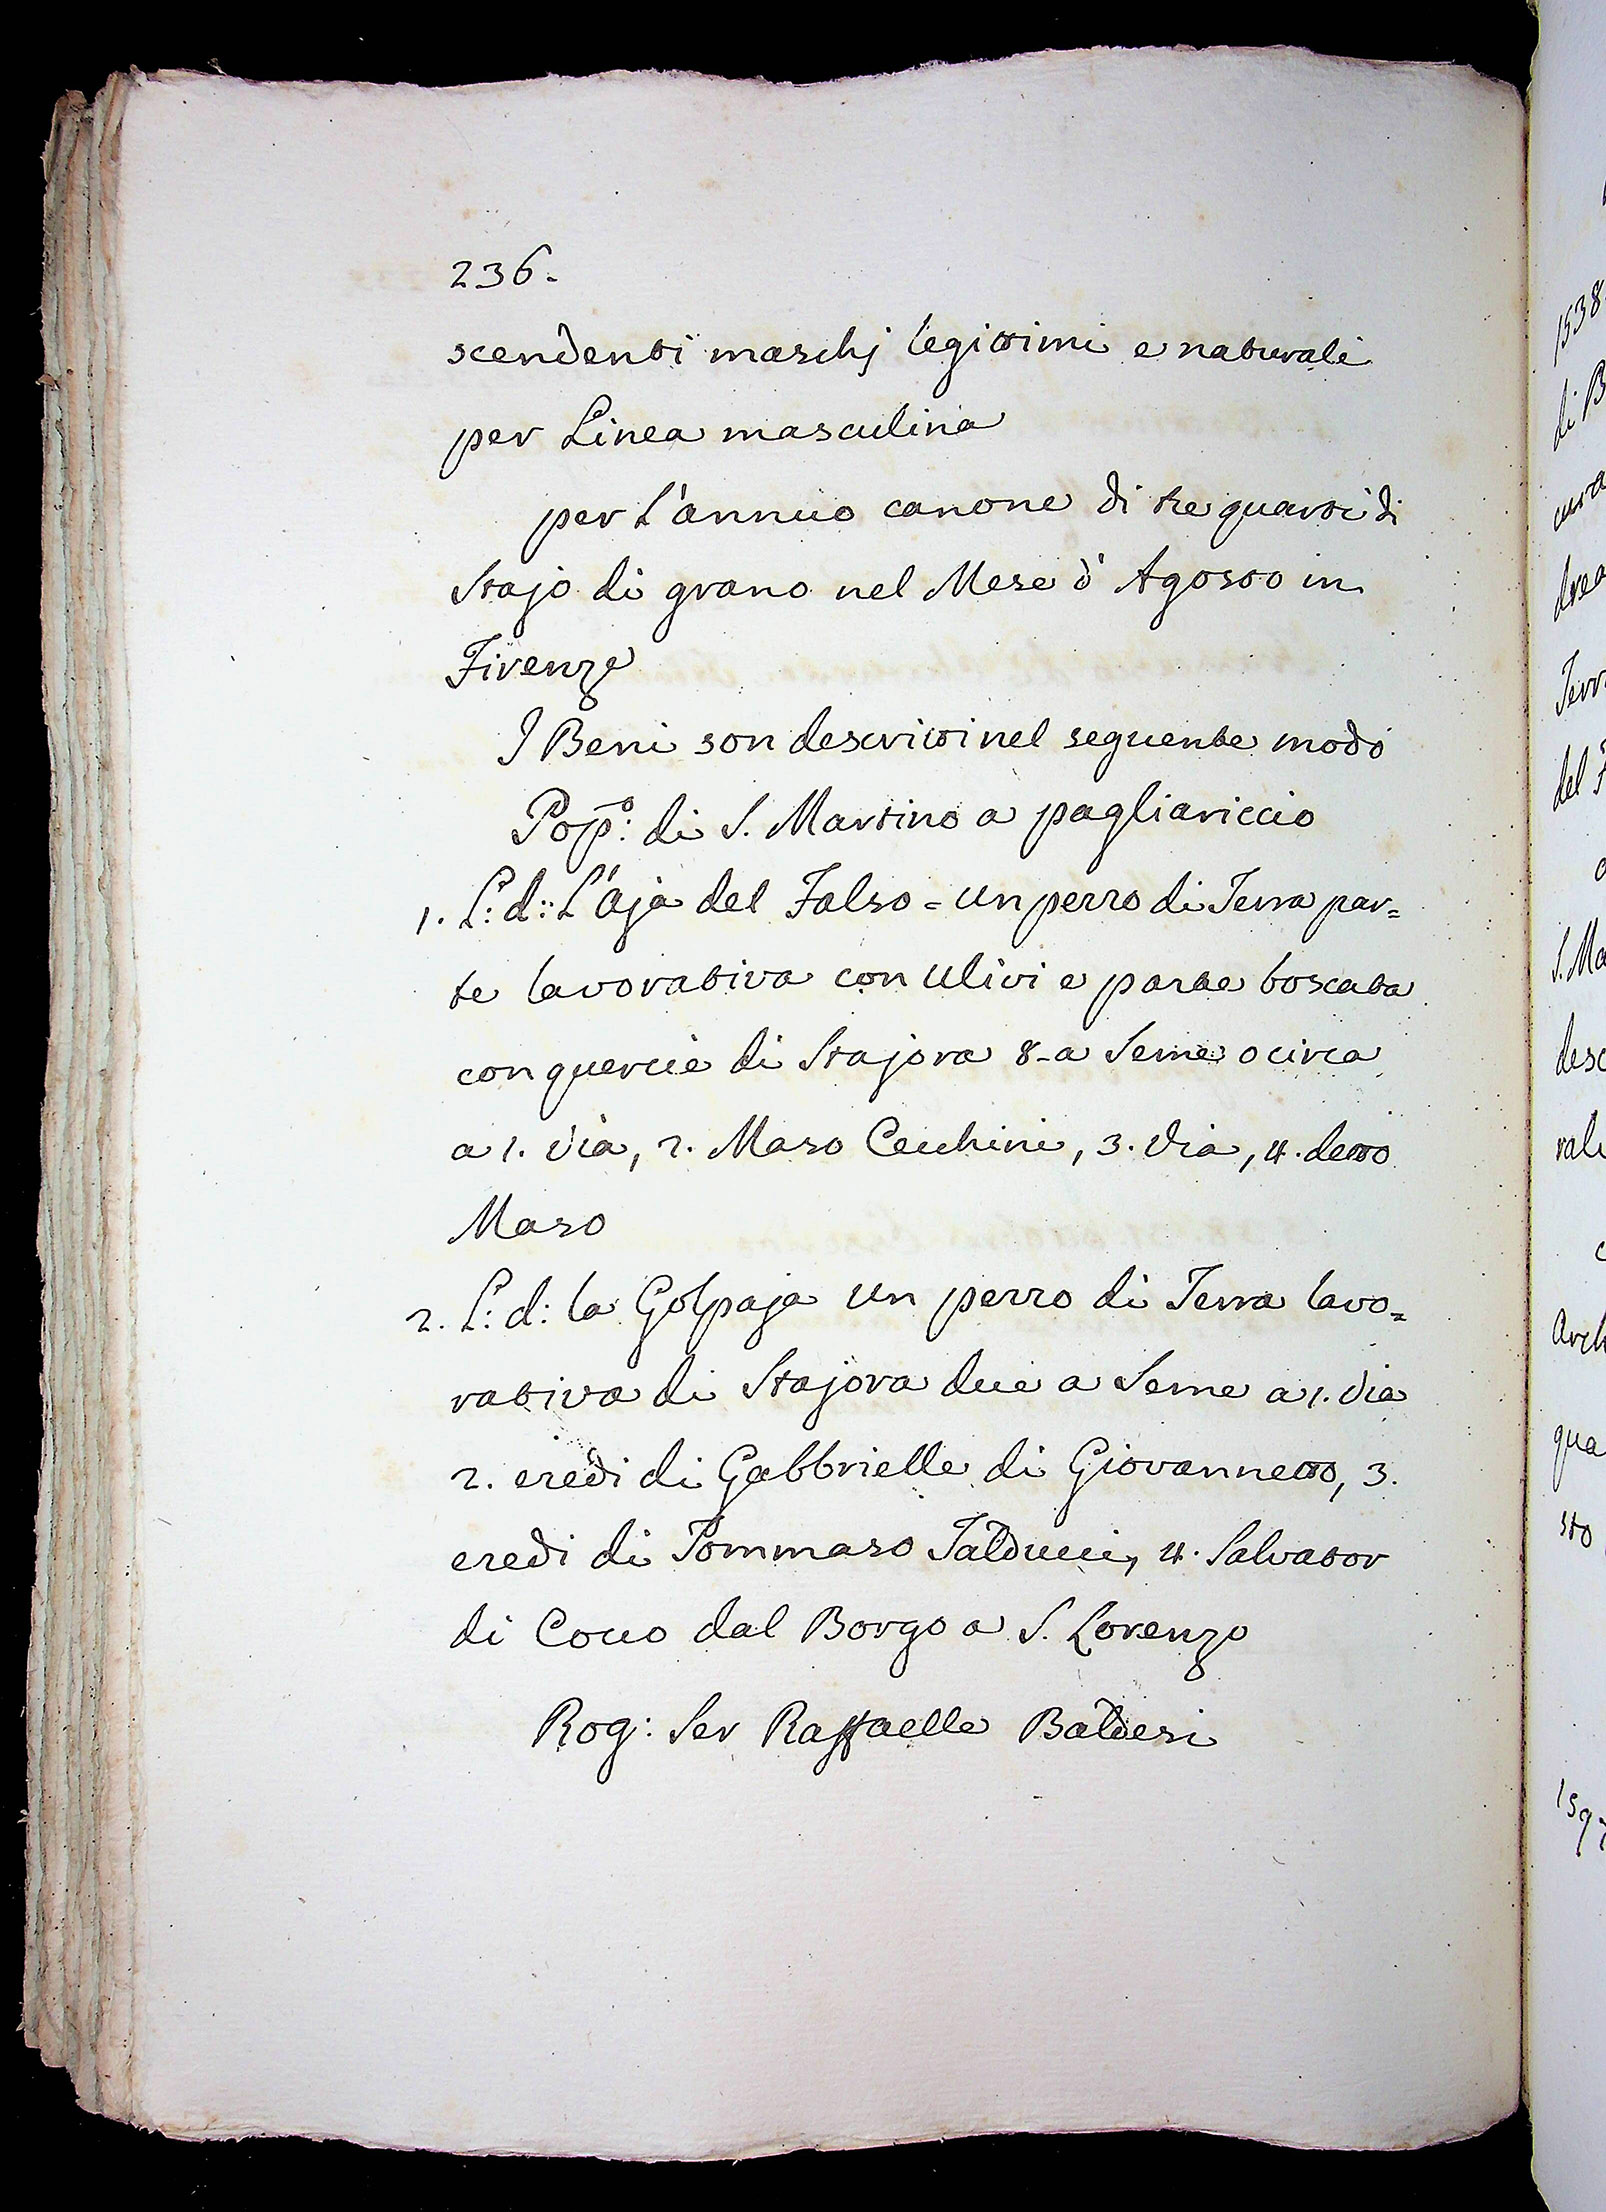 236.
scendenti maschj legittimi e naturali
per Linea masculina
per L'annuo canone di tre quarti di
Stajo di grano nel Mese d'Agosto in
Firenze
I Beni son descritti nel seguente modo
Pop:º di S. Martino a pagliariccio
1. L: d: L'Aja del Falso = un pezzo di Terra par=
te lavorativa con ulivi e parte boscata
con quercie di Stajora 8 - a Seme o circa
a 1. via, 2. Maso Cecchini, 3. via, 4. detto
Maso
2. L: d: la Golpaja un pezzo di Terra lavo=
rativa di Stajora due a Seme a 1. via
2. eredi di Gabbrielle di Giovannetto, 3.
eredi di Tommaso Talducci, 4. Salvator
di Cocco dal Borgo a S. Lorenzo
Rog: Ser Raffaelle Baldesi
1538
di B
cura
drea
Terr
del F
S. Ma
desc
vale
Arch
qua
sto
159